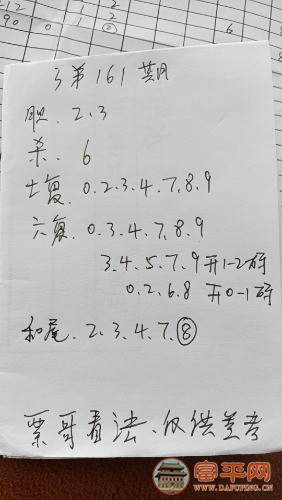 12 1 2
90 0 1 ②
6
3第161期
胆. 2.3
杀. 6
七复. 0.2.3.4.7.8.9
六复. 0.3.4.7.8.9
3.4.5.7.9开1-2码
0.2.6.8 开0-1码
和尾. 2.3.4.7.⑧
票哥看法、仅供参考
富平网
WWW.DAFUPING.CN